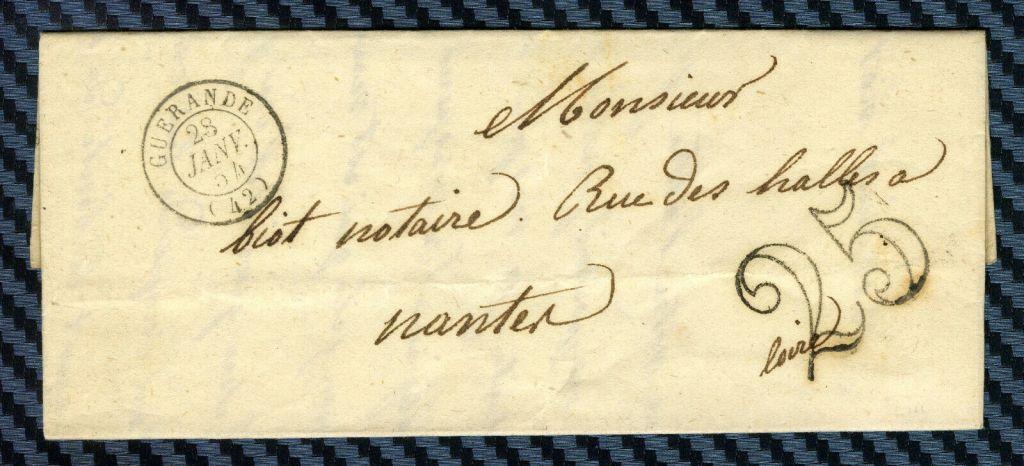 GUERANDE
28
JANV.
54
(42)
Monsieur
biot notaire. Rue des halles a
nantes
25
loire